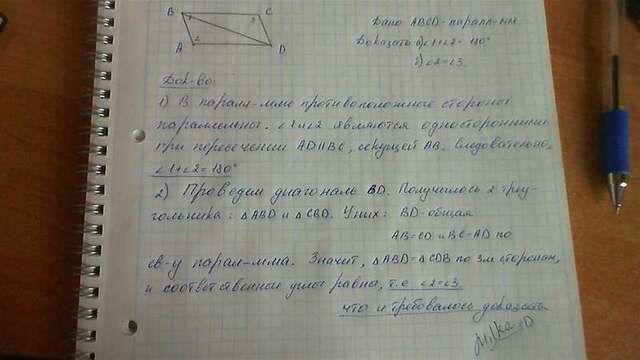 B C
A D
1 3
2
Дано ABCD - паралл-мм.
Доказать: а) ∠1+∠2= 180°
б) ∠2=∠3.
Док-во:
1) В паралл-мме противоположные стороны
параллельны. ∠1 и ∠2 являются односторонними
при пересечении AD||BC, секущей AB. Следовательно,
∠1+∠2=180°
2) Проведем диагональ BD. Получилось 2 треу-
гольника: △ABD и △CBD. У них: BD-общая
AB=CD и BC=AD по
св-у парал-мма. Значит, △ABD=△CDB по 3м сторонам,
и соответственно углы равны, т.е ∠2=∠3.
что и требовалось доказать